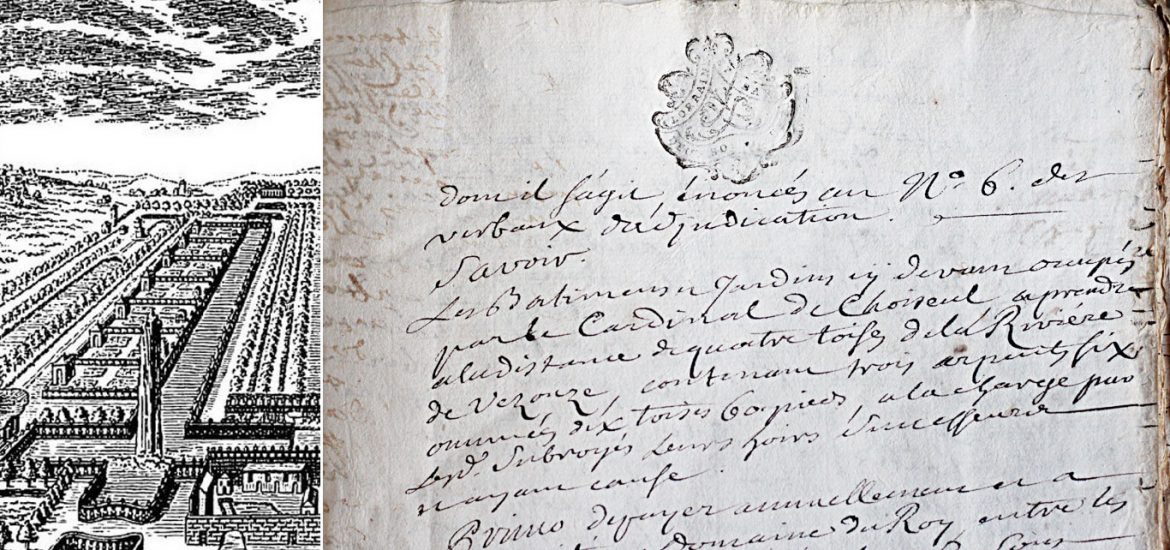 LORRAINE
dont il s'agit, énoncés au N.º 6. des
verbaux d'adjudication.
Savoir.
Les Batimens et Jardins cy devant occupés
par le Cardinal de Choiseul a prendre
a la distance de quatre toises de la Rivière
de Vezouze, contenant trois arpents six
ommées dix toises 60 pieds, a la charge par
lesd. Subrogés leurs hoirs Successeurs
et ayant cause
Primo de payer annuellement et a
Domaine du Roy entre les